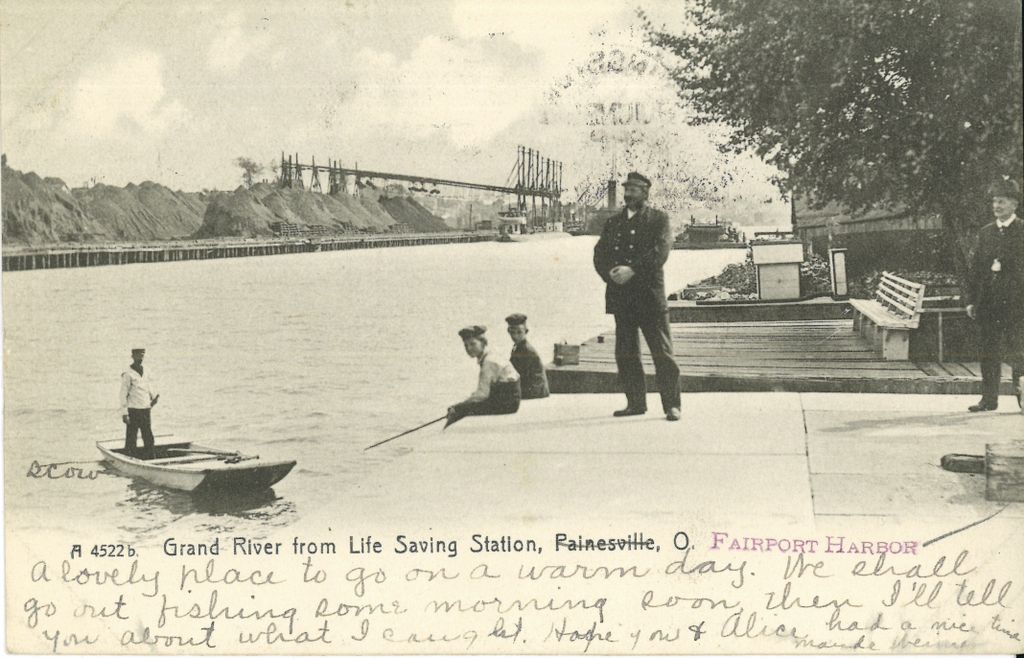 JUNE
scow
A 4522 b. Grand River from Life Saving Station, Painesville, O. FAIRPORT HARBOR
A lovely place to go on a warm day. We shall
go out fishing some morning soon, then I'll tell
you about what I caught. Hope you & Alice had a nice time
Maude